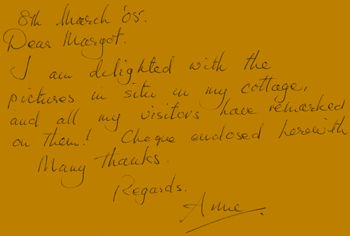 8th March '05.
Dear Margot.
I am delighted with the
pictures in situ in my cottage,
and all my visitors have remarked
on them! Cheque enclosed herewith
Many Thanks.
Regards.
Anne.